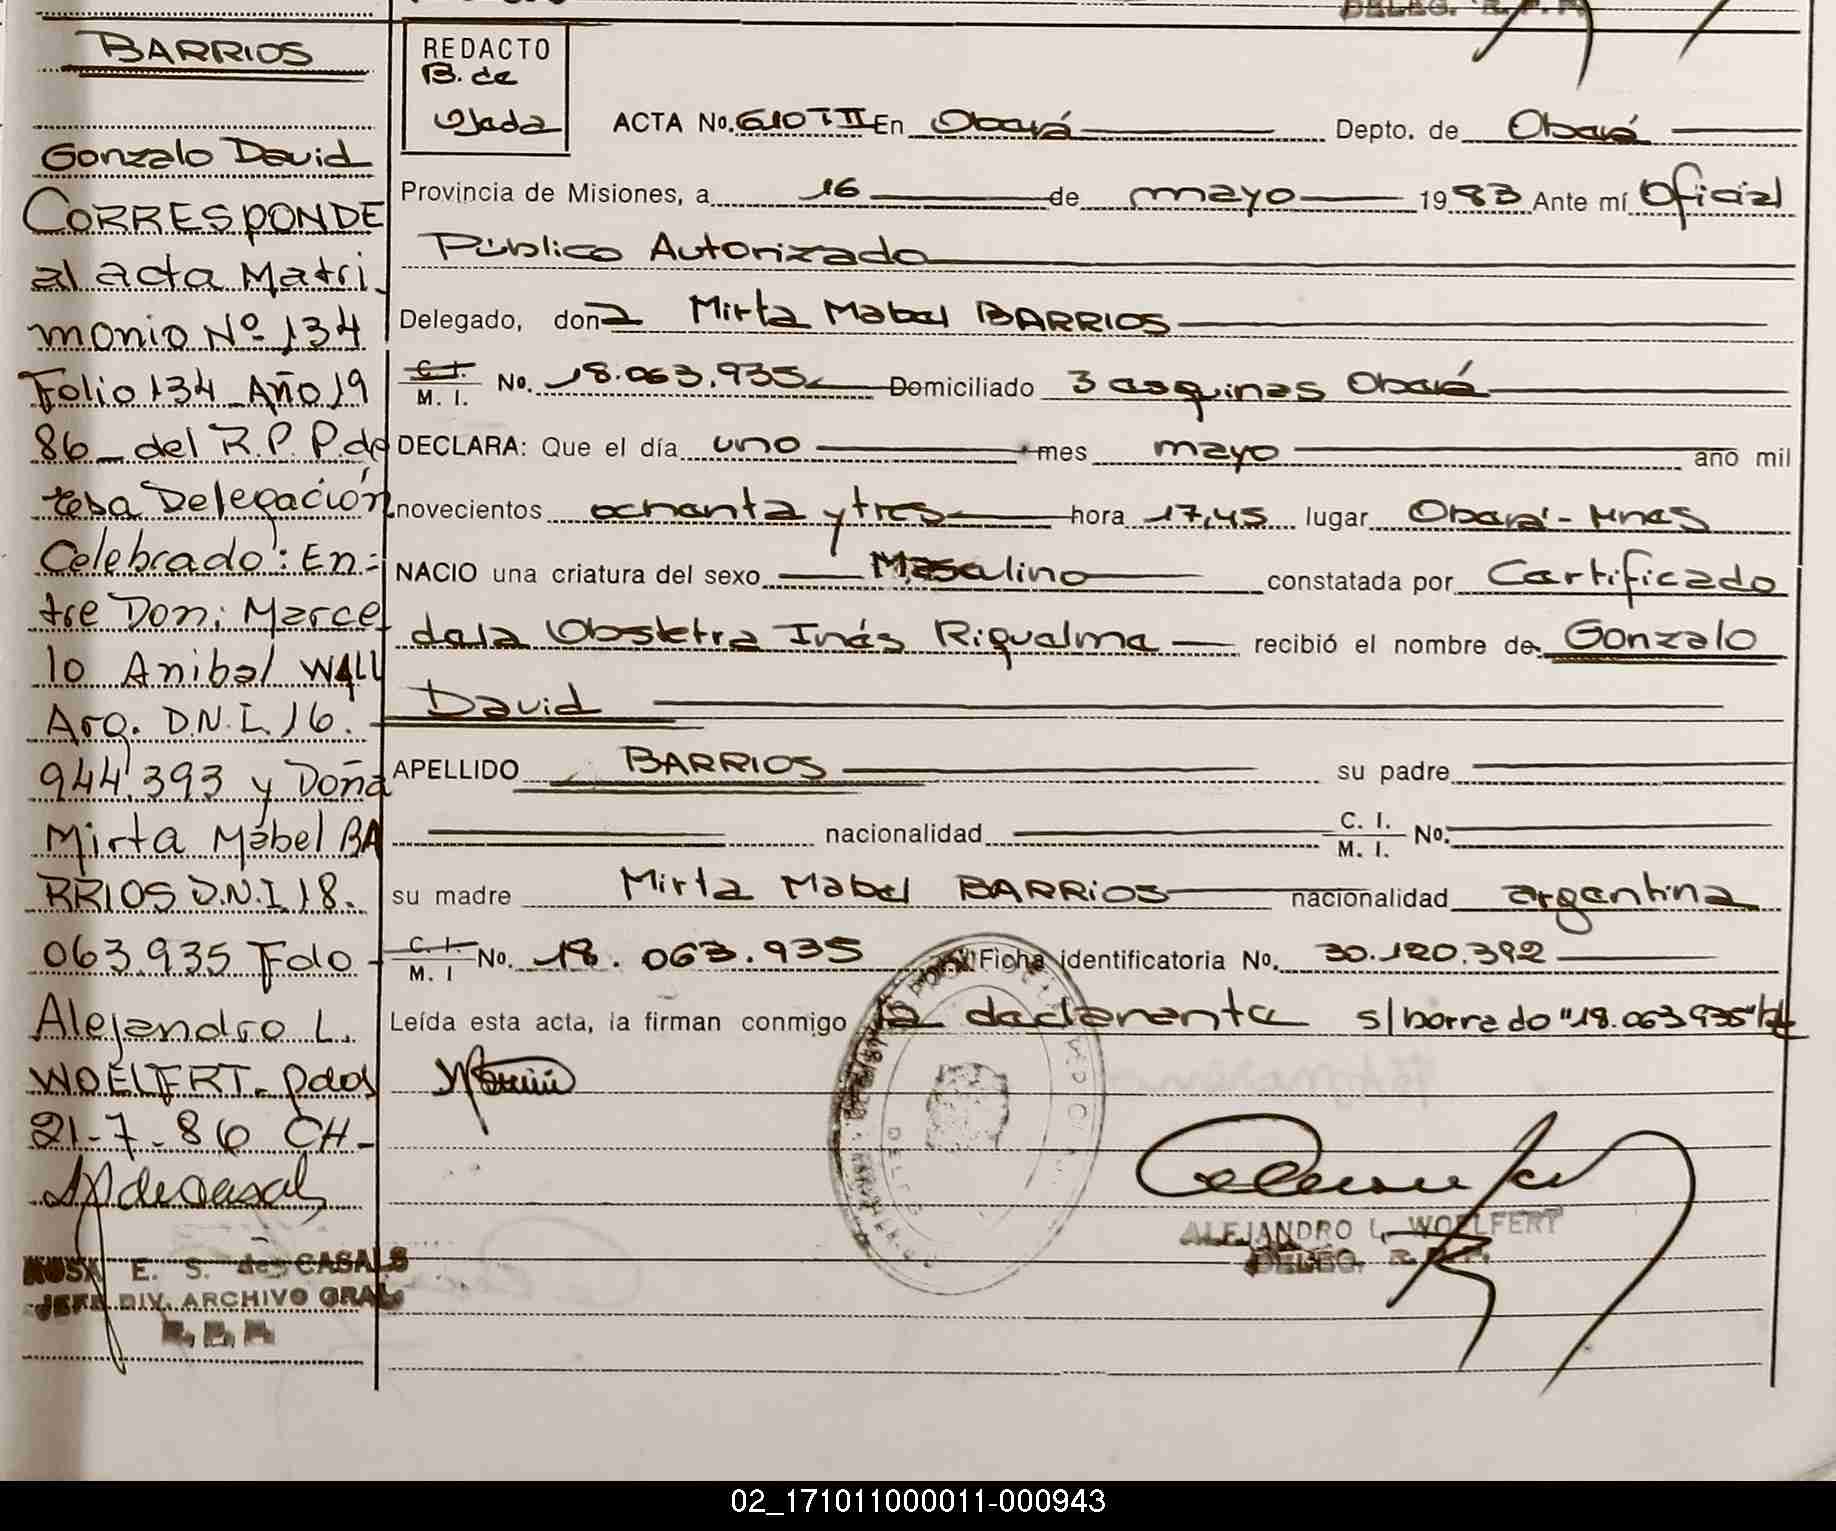 DELEG. R. P. P.
BARRIOS
Gonzalo David
CORRESPONDE
al acta Matri
monio Nº 134
Folio 134 Año 19
86 del R.P.P. de
esta Delegación
Celebrado: En=
tre Don: Marce
lo Anibal WALL
Arg. D.N.I. 16.
944.393 y Doña
Mirta Mabel BA
RRIOS D.N.I 18.
063.935 Fdo
Alejandro L.
WOELFERT- Pdas
21-7-86 CH-
RUSA E. S. de CASALS
JEFE DIV. ARCHIVO GRAL.
R. P. P.
REDACTO
B. de
Ojeda
ACTA No. 610 T II En Oberá Depto. de Oberá
Provincia de Misiones, a 16 de mayo 1983 Ante mí Oficial
Público Autorizado
Delegado, dona Mirta Mabel BARRIOS
C. I. M. I. No. 18.063.935 Domiciliado 3 esquinas Oberá
DECLARA: Que el día uno mes mayo año mil
novecientos ochenta y tres hora 17,45 lugar Oberá - Mnes
NACIO una criatura del sexo Masculino constatada por Certificado
de la Obstetra Inés Riquelme recibió el nombre de Gonzalo
David
APELLIDO BARRIOS su padre
nacionalidad C. I. M. I. No.
su madre Mirta Mabel BARRIOS nacionalidad argentina
C. I. M. I No. 18.063.935 Ficha identificatoria No. 30.120.392
Leída esta acta, la firman conmigo la declarante s/borrado "18.063935"
ALEJANDRO L. WOELFERT
DELEG. R. P. P.
02_171011000011-000943